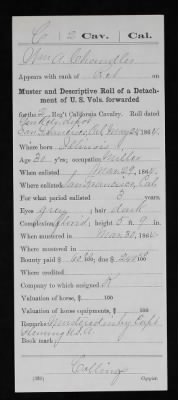 C | 2 Cav. | Cal.
Wm A. Chandler
Appears with rank of Rct on
Muster and Descriptive Roll of a Detach-
ment of U. S. Vols. forwarded
for the 2 Reg't California Cavalry. Roll dated
San Francisco, Cal. 186
Where born Illinois
Age 30 y'rs; occupation Miller
When enlisted Mar 29, 186
Where enlisted San Francisco, Cal
For what period enlisted 3 years.
Eyes grey; hair dark
Complexion florid; height 5 ft. 9 in.
When mustered in Mar 30, 186
Where mustered in
Bounty paid $ 60 00; due $ 00
Where credited
Company to which assigned K
Valuation of horse, $ 100
Valuation of horse equipments, $ 100
Remarks: by Capt
Fleming U.S.A.
Book mark:
Collins
Copyist.